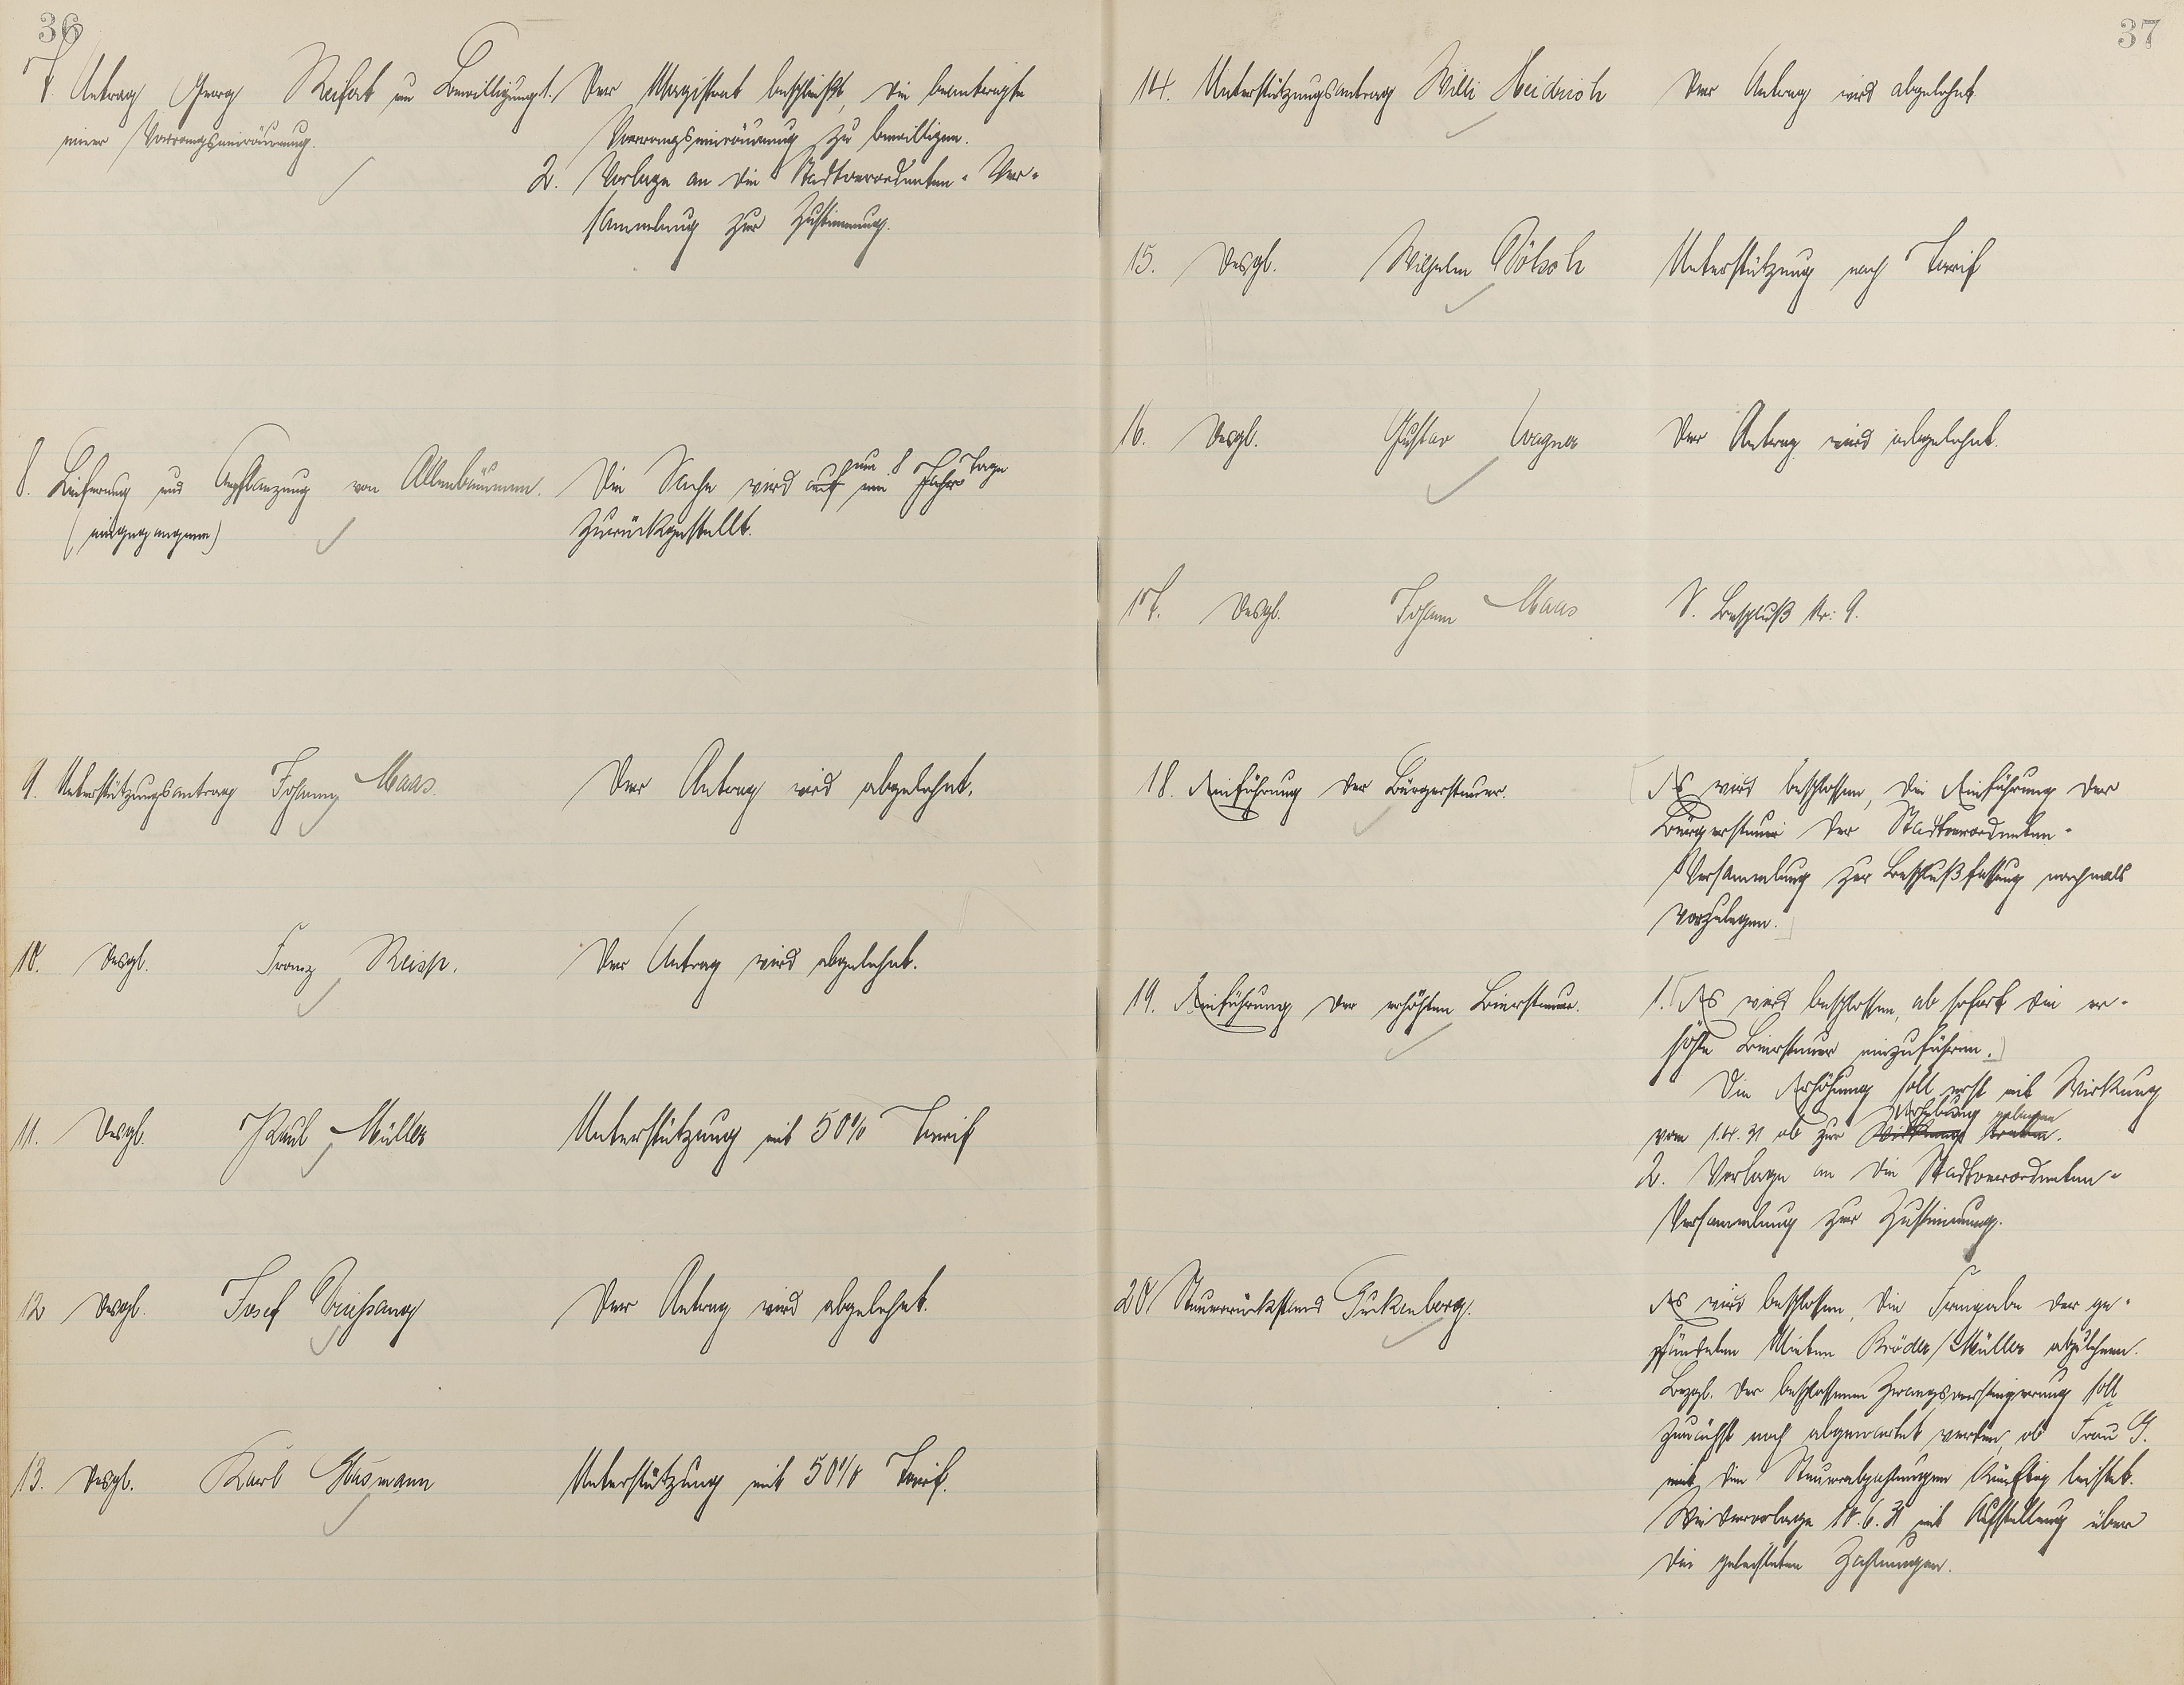 36
7. Antrag Georg Reifert um Bewilligung
einer Vorrangseinräumung.
1. Der Magistrat beschließt, die beantragte
Vorrangseinräumung zu bewilligen.
2. Vorlage an die Stadtverordneten-Ver-
sammlung zur Zustimmung.
8. Lieferung und Anpflanzung von Alleebäumen.
(eingegangenen)
Die Sache wird auf ein Jahr um 8 Tage
zurückgestellt.
9. Unterstützungsantrag Johann Maas.
Der Antrag wird abgelehnt.
10. Desgl. Franz Reisp.
Der Antrag wird abgelehnt.
11. Desgl. Paul Müller
Unterstützung mit 50% Tarif
12 Desgl. Josef
Der Antrag wird abgelehnt.
13. Desgl. Karl Husmann
Unterstützung mit 50% Tarif.
37
14. Unterstützungsantrag Willi Heidrich
Der Antrag wird abgelehnt
15. Desgl. Wilhelm Pötsch
Unterstützung nach Tarif
16. Desgl. Gustav Wagner
Der Antrag wird abgelehnt.
17. Desgl. Johann Maas
S. Beschluß Nr: 9.
18. Einführung der Bürgersteuer.
Es wird beschlossen, die Einführung der
Bürgersteuer der Stadtverordneten-
Versammlung zur Beschlußfassung nochmals
vorzulegen.
19. Einführung der erhöhten Biersteuer.
1. Es wird beschlossen, ab sofort die er-
höhte Biersteuer einzuführen.
Die Erhöhung soll erst mit Wirkung
vom 1.4.31 ab zur Wirkung treten. Erhebung gelangen
2. Vorlage an die Stadtverordneten-
Versammlung zur Zustimmung.
20 Steuerrückstand
Es wird beschlossen, die Freigabe der ge-
pfändeten Mieten Bröder/Müller abzulehnen.
Bezgl. der beschlossenen Zwangsversteigerung soll
zunächst noch abgewartet werden, ob Frau G.
mit den Steuerabzahlungen künftig leistet.
Wiedervorlage 10.6.31 mit Aufstellung über
die geleisteten Zahlungen.